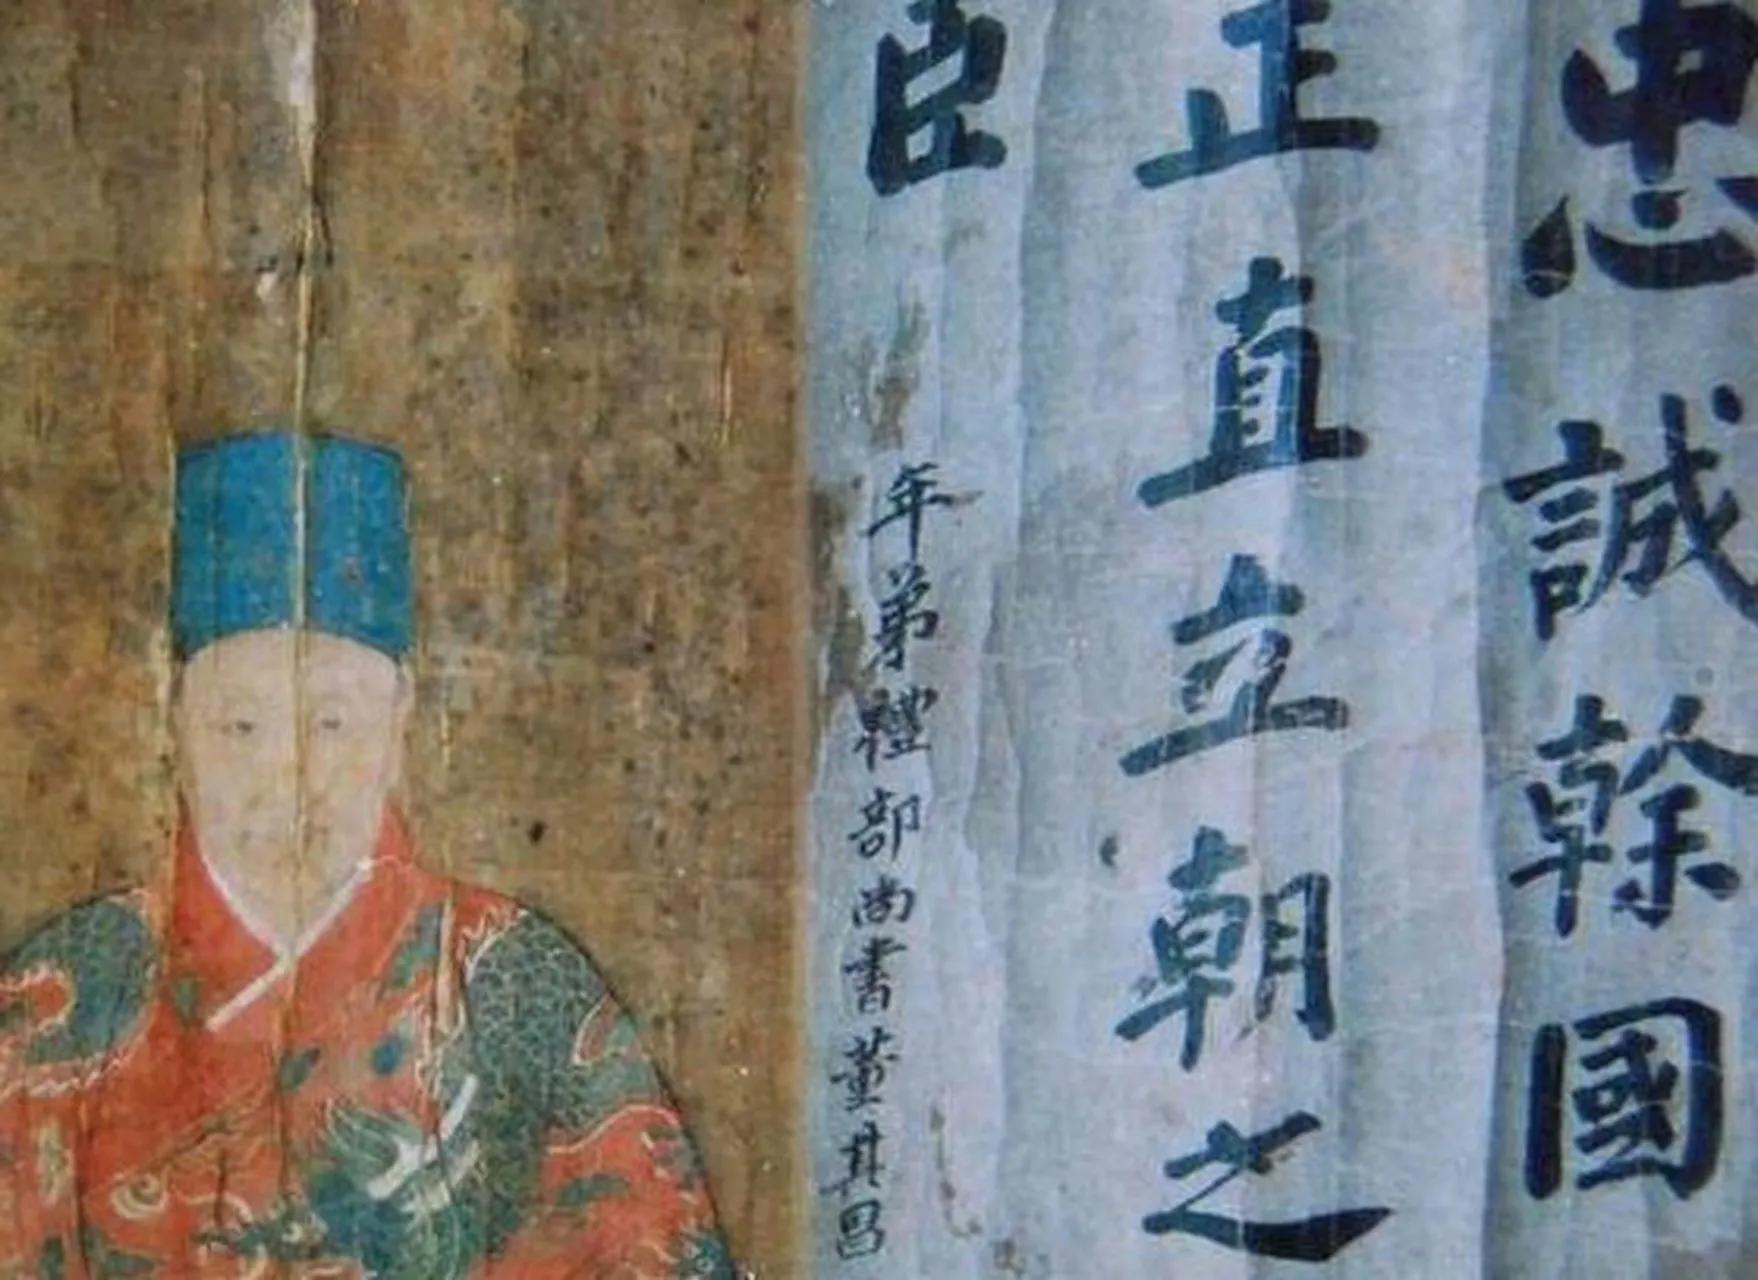 忠誠幹國
正直立朝之
臣
年弟禮部尚書董其昌